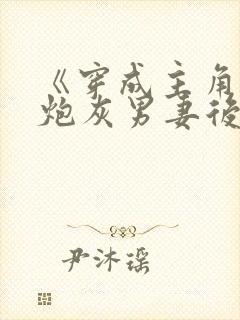 《穿成主角
炮灰男妻後
尹沐瑶